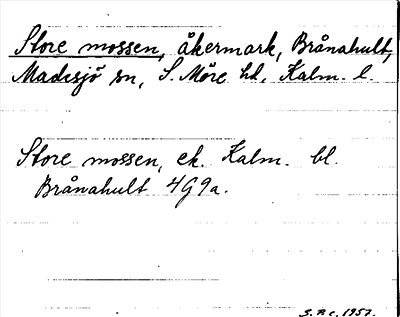 Store mossen, åkermark, Brånahult,
Madesjö sn, S. Möre hd, Kalm. l.
Store mossen, ek. Kalm. bl.
Brånahult 4G9a.
S.B.C. 1957.